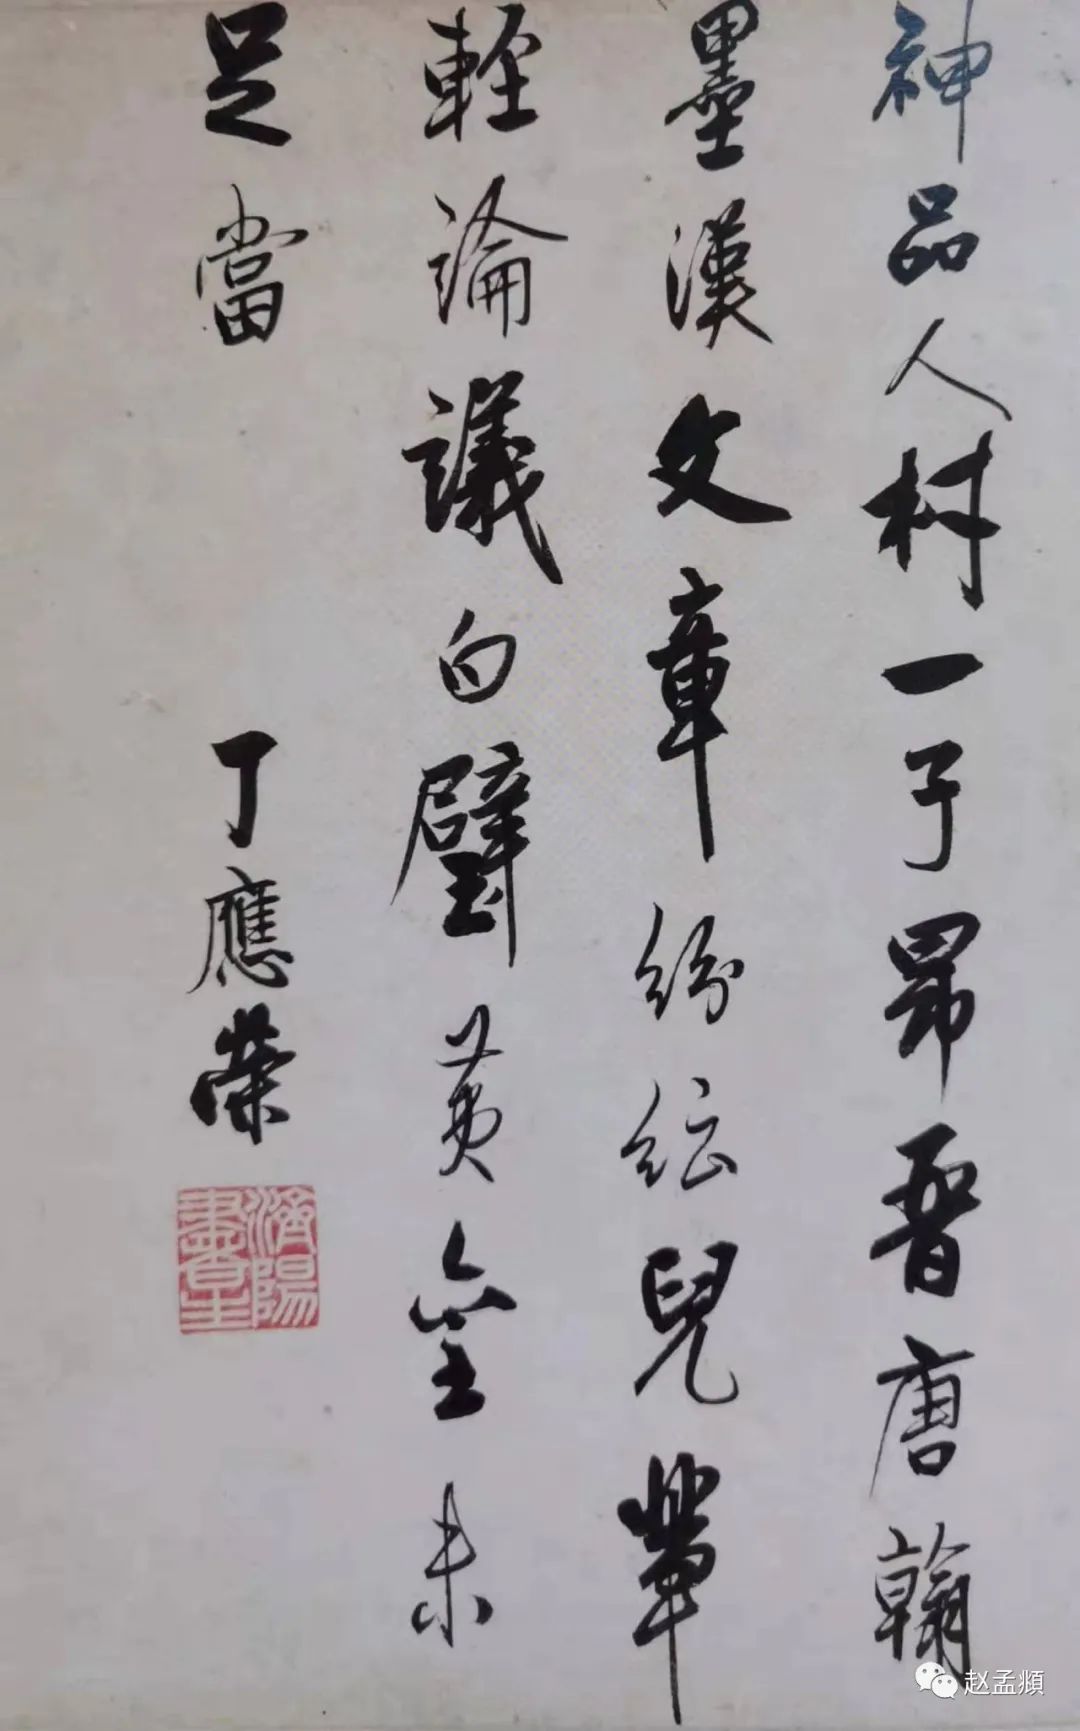 神品人材一子昂晋唐翰
墨漢文章紛紜兒輩
輕論議白璧黄金未
足當
丁應榮
濟陽
書王
赵孟頫